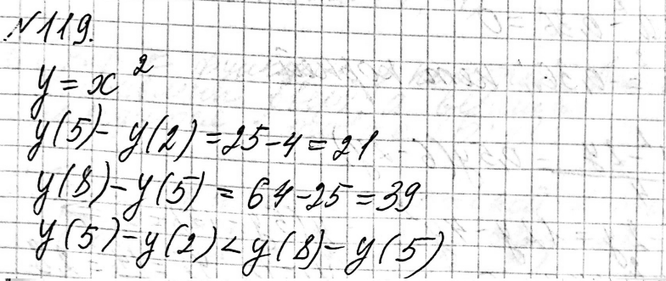 №119.
y = x²
y(5) - y(2) = 25 - 4 = 21
y(8) - y(5) = 64 - 25 = 39
y(5) - y(2) < y(8) - y(5)